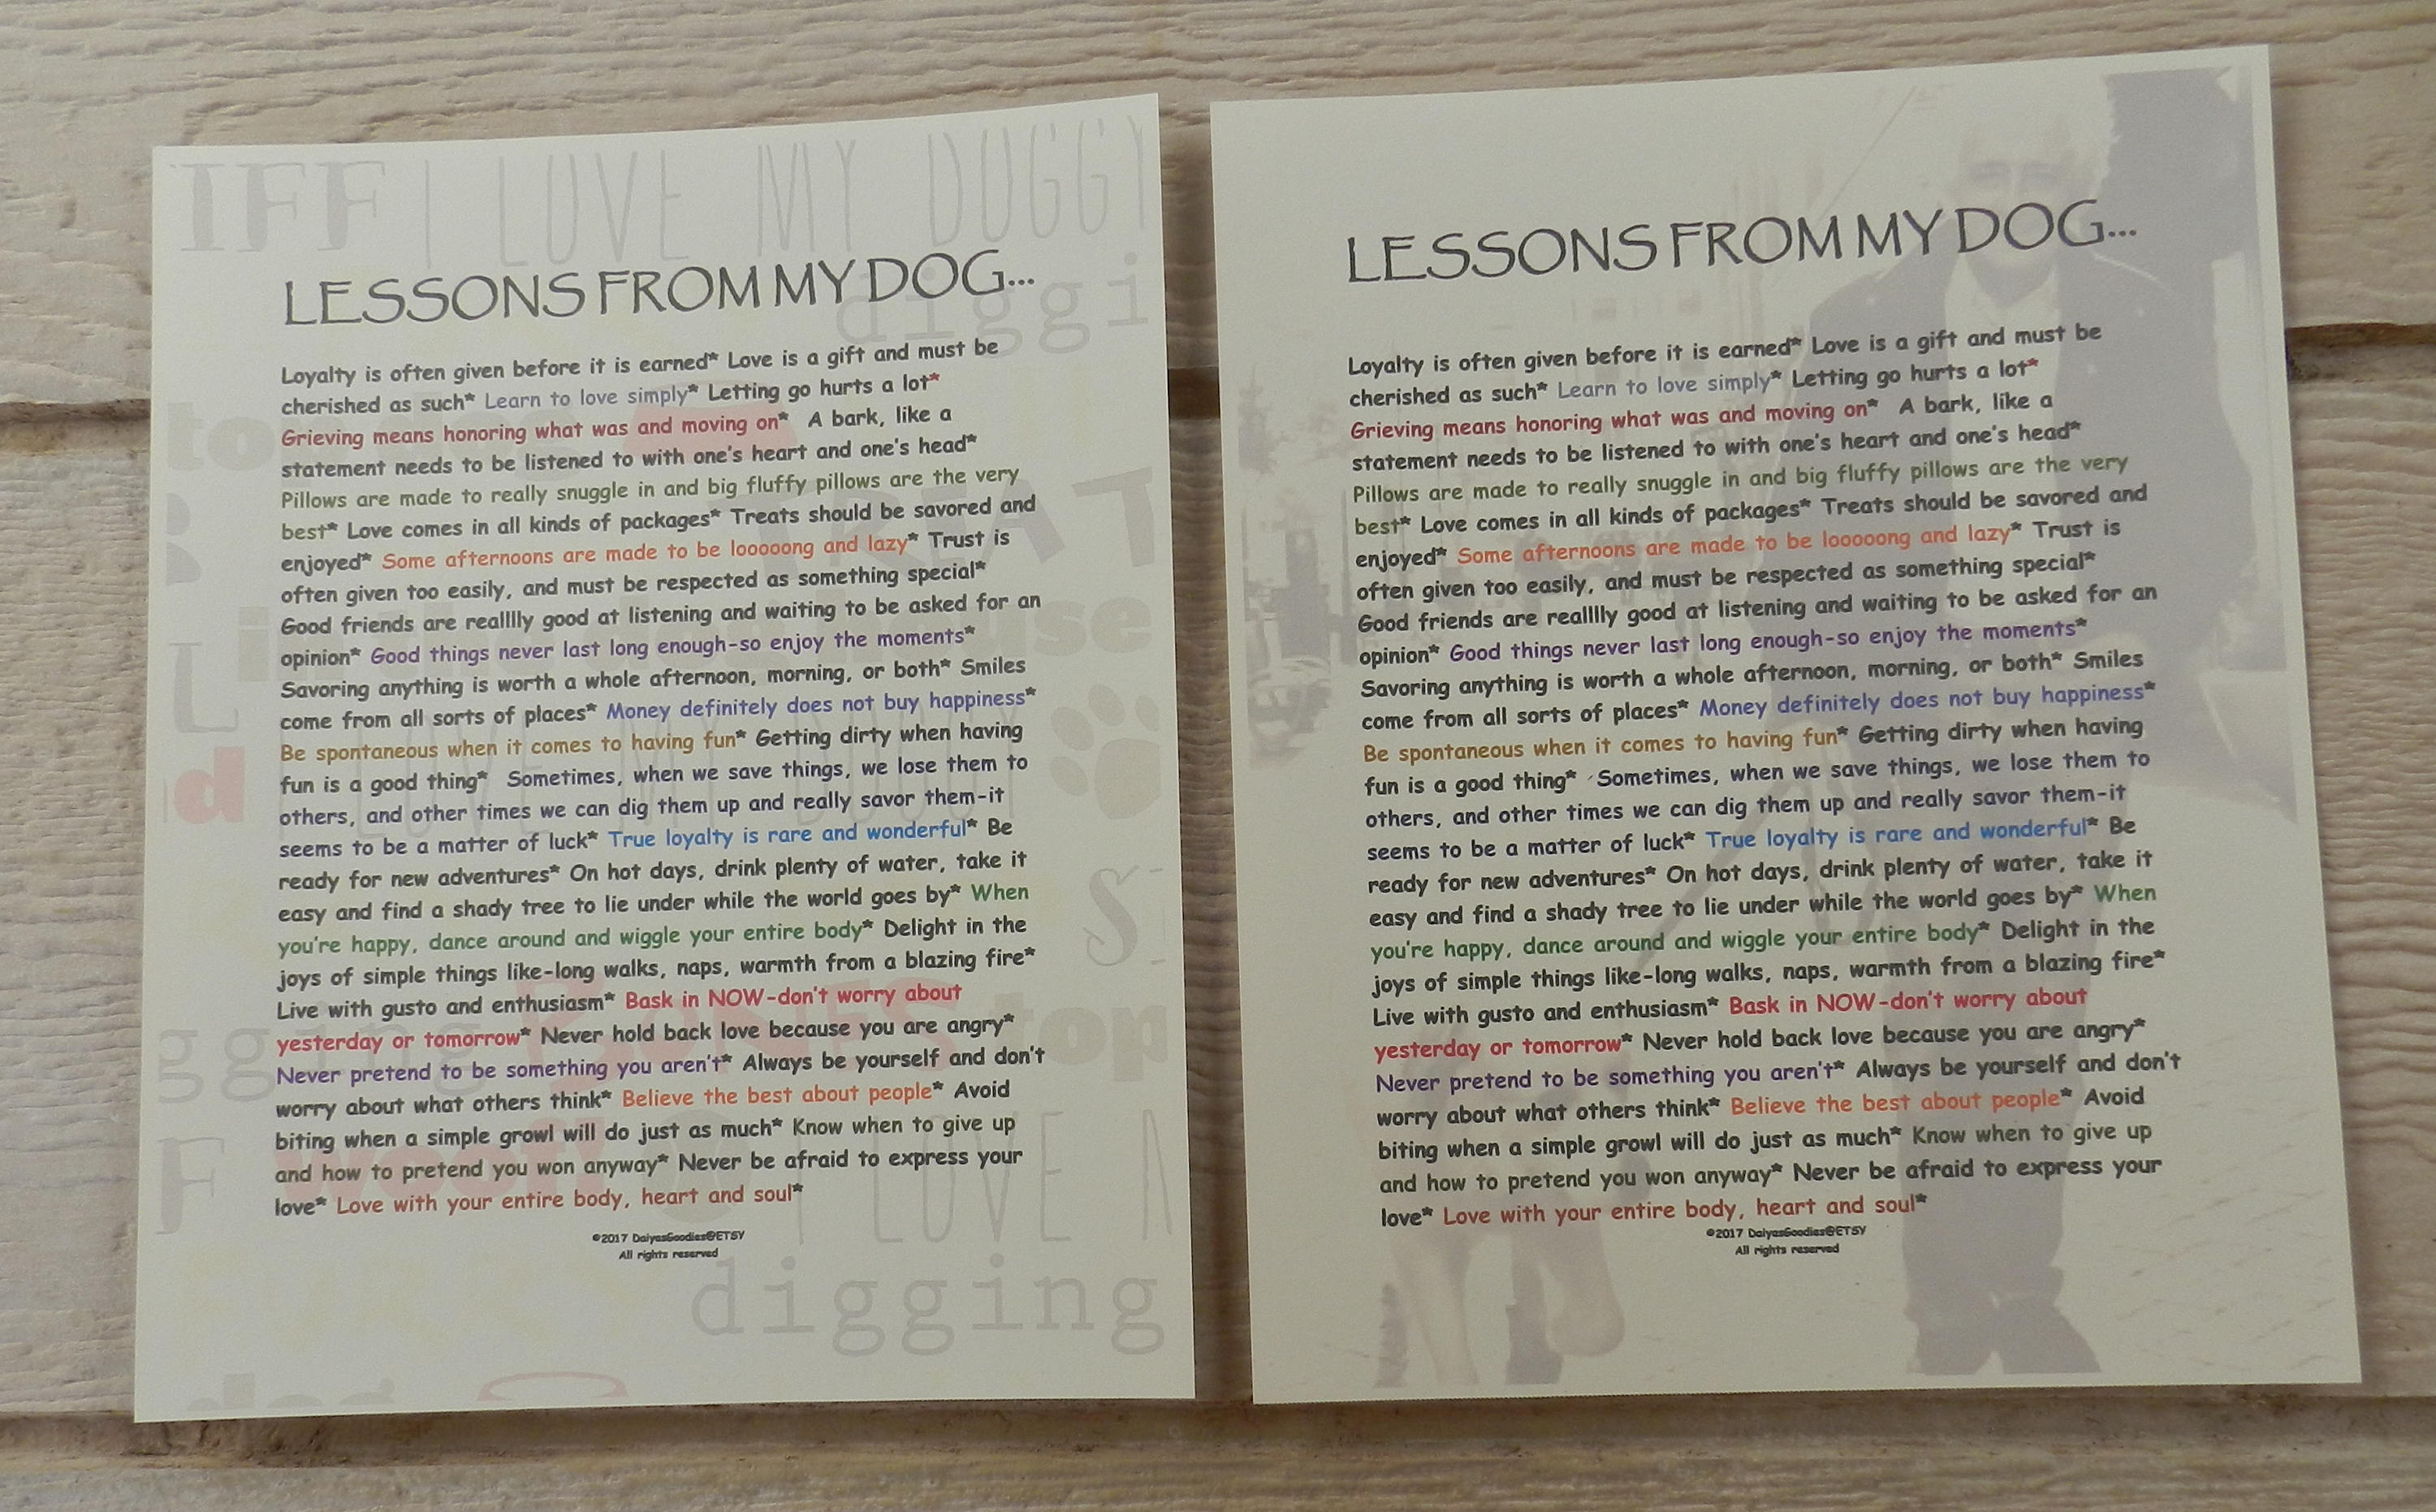 IFF I LOVE MY DOGGY
LESSONS FROM MY DOG...
diggi
Loyalty is often given before it is earned* Love is a gift and must be
cherished as such* Learn to love simply* Letting go hurts a lot*
Grieving means honoring what was and moving on* A bark, like a
statement needs to be listened to with one's heart and one's head*
Pillows are made to really snuggle in and big fluffy pillows are the very
best* Love comes in all kinds of packages* Treats should be savored and
enjoyed* Some afternoons are made to be looooong and lazy* Trust is
often given too easily, and must be respected as something special*
Good friends are realllly good at listening and waiting to be asked for an
opinion* Good things never last long enough-so enjoy the moments*
Savoring anything is worth a whole afternoon, morning, or both* Smiles
come from all sorts of places* Money definitely does not buy happiness*
Be spontaneous when it comes to having fun* Getting dirty when having
fun is a good thing* Sometimes, when we save things, we lose them to
others, and other times we can dig them up and really savor them-it
seems to be a matter of luck* True loyalty is rare and wonderful* Be
ready for new adventures* On hot days, drink plenty of water, take it
easy and find a shady tree to lie under while the world goes by* When
you're happy, dance around and wiggle your entire body* Delight in the
joys of simple things like-long walks, naps, warmth from a blazing fire*
Live with gusto and enthusiasm* Bask in NOW-don't worry about
yesterday or tomorrow* Never hold back love because you are angry*
Never pretend to be something you aren't* Always be yourself and don't
worry about what others think* Believe the best about people* Avoid
biting when a simple growl will do just as much* Know when to give up
and how to pretend you won anyway* Never be afraid to express your
love* Love with your entire body, heart and soul*
I LOVE A
©2017 DaiyasGoodies@ETSY
All rights reserved
digging
dog
LESSONS FROM MY DOG...
Loyalty is often given before it is earned* Love is a gift and must be
cherished as such* Learn to love simply* Letting go hurts a lot*
Grieving means honoring what was and moving on* A bark, like a
statement needs to be listened to with one's heart and one's head*
Pillows are made to really snuggle in and big fluffy pillows are the very
best* Love comes in all kinds of packages* Treats should be savored and
enjoyed* Some afternoons are made to be looooong and lazy* Trust is
often given too easily, and must be respected as something special*
Good friends are realllly good at listening and waiting to be asked for an
opinion* Good things never last long enough-so enjoy the moments*
Savoring anything is worth a whole afternoon, morning, or both* Smiles
come from all sorts of places* Money definitely does not buy happiness*
Be spontaneous when it comes to having fun* Getting dirty when having
fun is a good thing* Sometimes, when we save things, we lose them to
others, and other times we can dig them up and really savor them-it
seems to be a matter of luck* True loyalty is rare and wonderful* Be
ready for new adventures* On hot days, drink plenty of water, take it
easy and find a shady tree to lie under while the world goes by* When
you're happy, dance around and wiggle your entire body* Delight in the
joys of simple things like-long walks, naps, warmth from a blazing fire*
Live with gusto and enthusiasm* Bask in NOW-don't worry about
yesterday or tomorrow* Never hold back love because you are angry*
Never pretend to be something you aren't* Always be yourself and don't
worry about what others think* Believe the best about people* Avoid
biting when a simple growl will do just as much* Know when to give up
and how to pretend you won anyway* Never be afraid to express your
love* Love with your entire body, heart and soul*
©2017 DaiyasGoodies@ETSY
All rights reserved